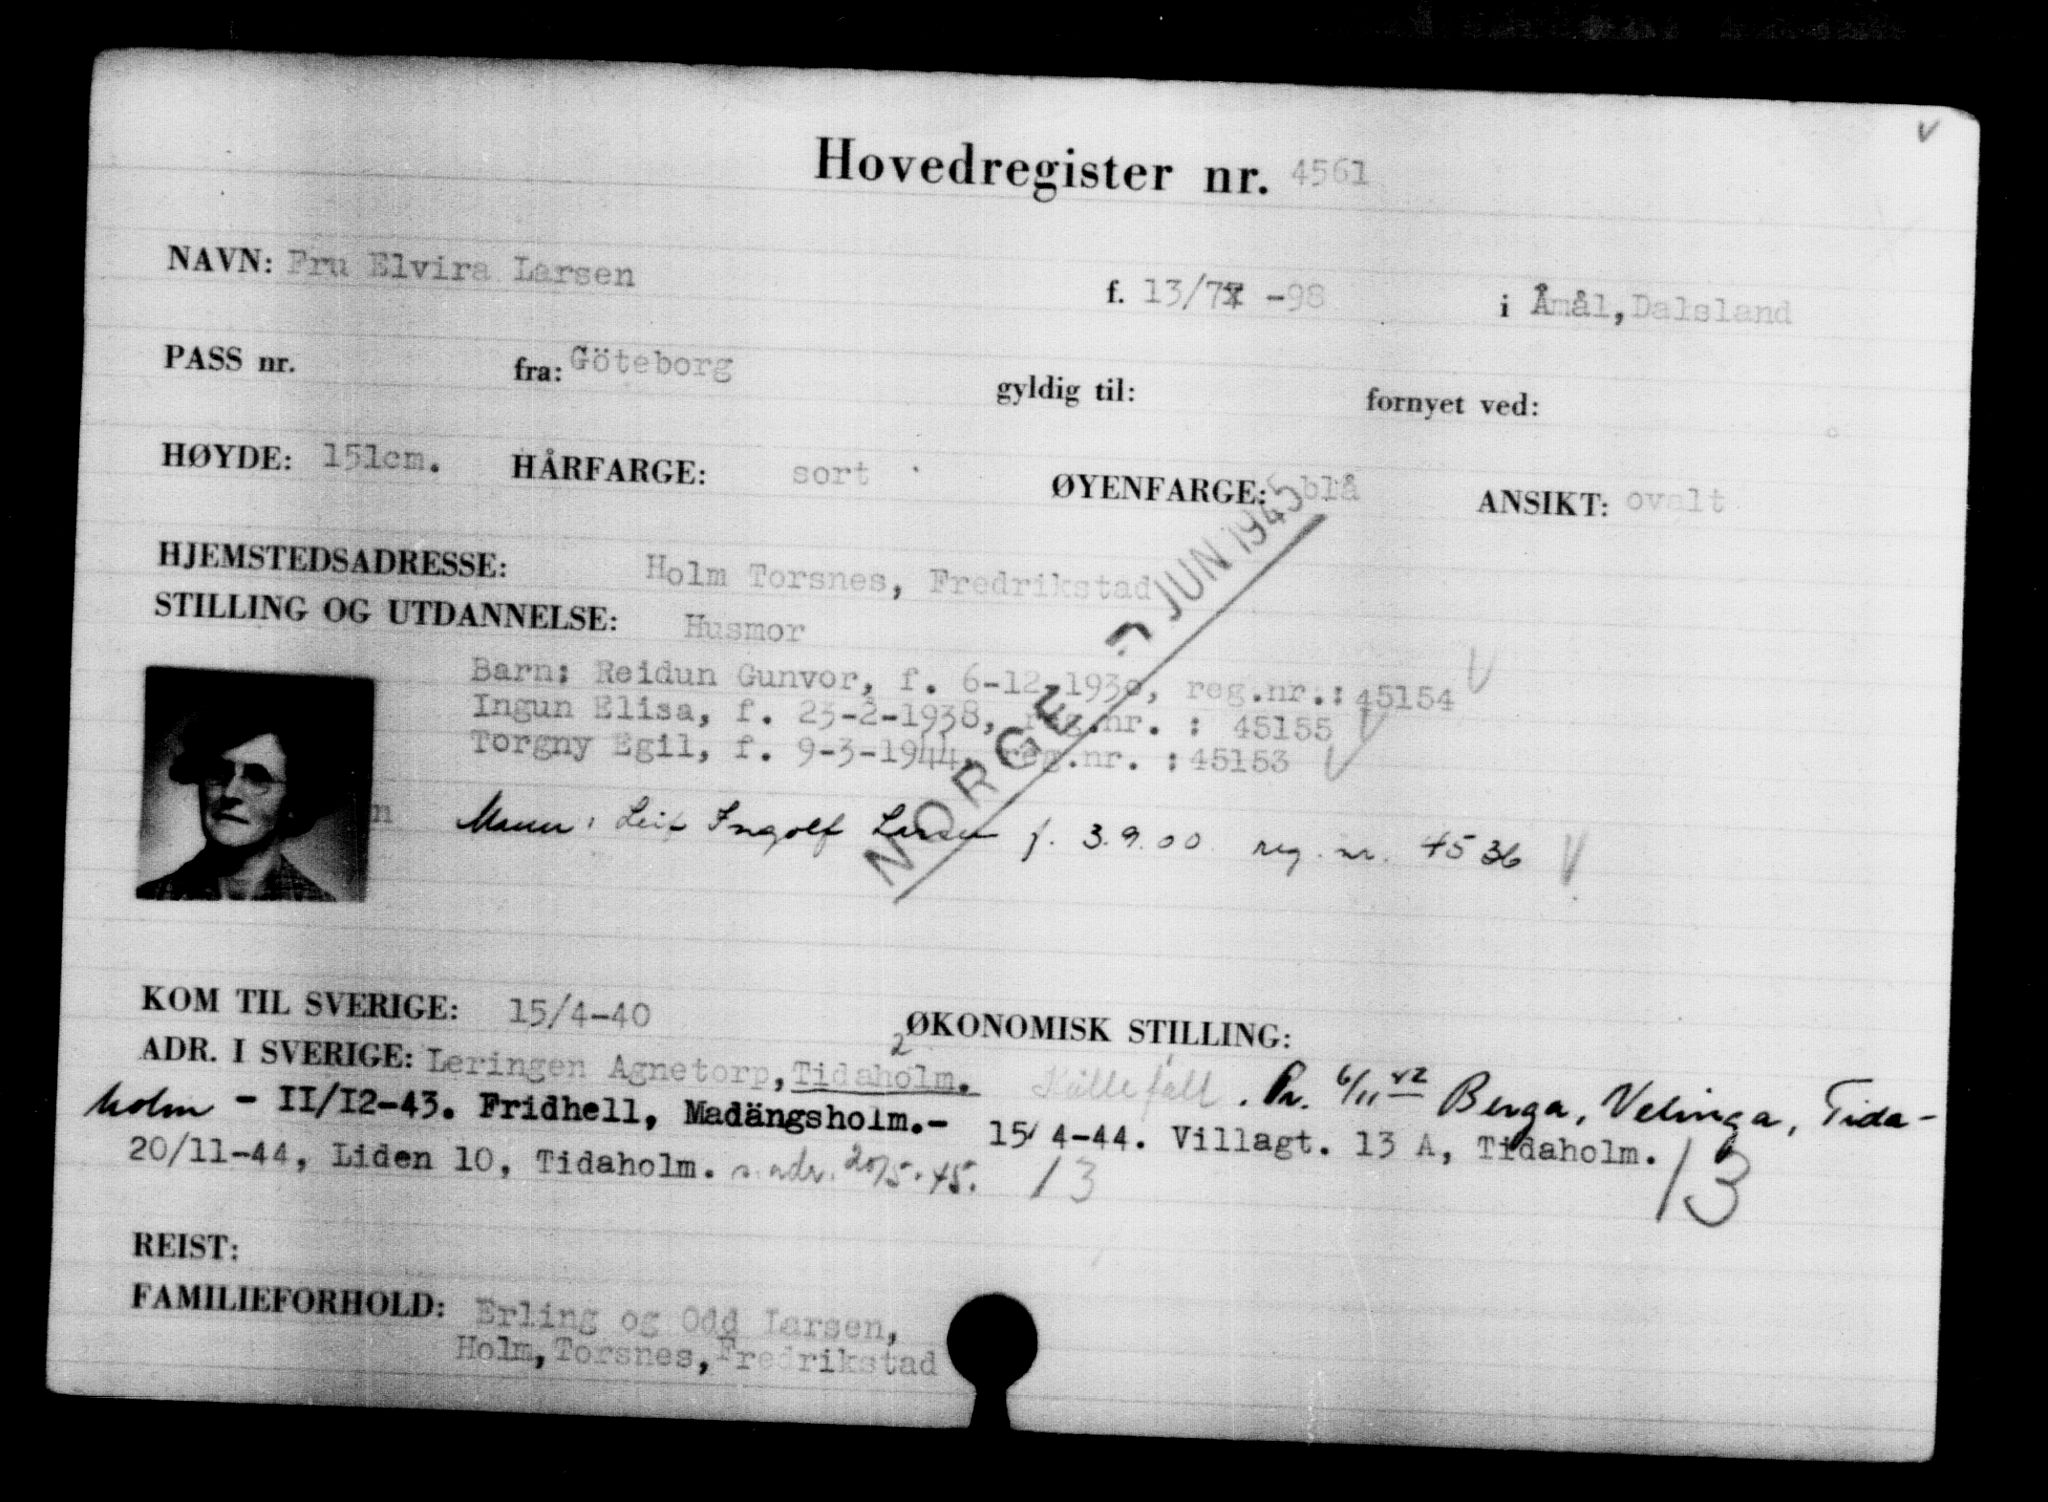 Hovedregister nr. 4561
NAVN: Fru Elvira Larsen f. 13/7 -98 i Åmål, Dalsland
PASS nr. fra: Göteborg gyldig til: fornyet ved:
HØYDE: 151cm. HÅRFARGE: sort ØYENFARGE: blå ANSIKT: ovalt
HJEMSTEDSADRESSE: Holm Torsnes, Fredrikstad
STILLING OG UTDANNELSE: Husmor
NORGE JUN 1945
Barn: Reidun Gunvor, f. 6-12-1930, reg.nr.: 45154 V
Ingun Elisa, f. 23-2-1938, reg.nr. : 45155 V
Torgny Egil, f. 9-3-1944, reg.nr. : 45153 V
n
Mann: Leif Ingolf Larsen f. 3.9.00 reg. nr. 4536 V
KOM TIL SVERIGE: 15/4-40 ØKONOMISK STILLING: 2
ADR. I SVERIGE: Leringen Agnetorp, Tidaholm. Pr. 6/11 42 Berga, Velinga, Tida-
holm - II/I2-43. Fridhell, Madängsholm.- 15/4-44. Villagt. 13 A, Tidaholm. 13
20/11-44, Liden 10, Tidaholm. n. adr. 20/5.45. 13
REIST:
FAMILIEFORHOLD: Erling og Odd Larsen,
Holm, Torsnes, Fredrikstad